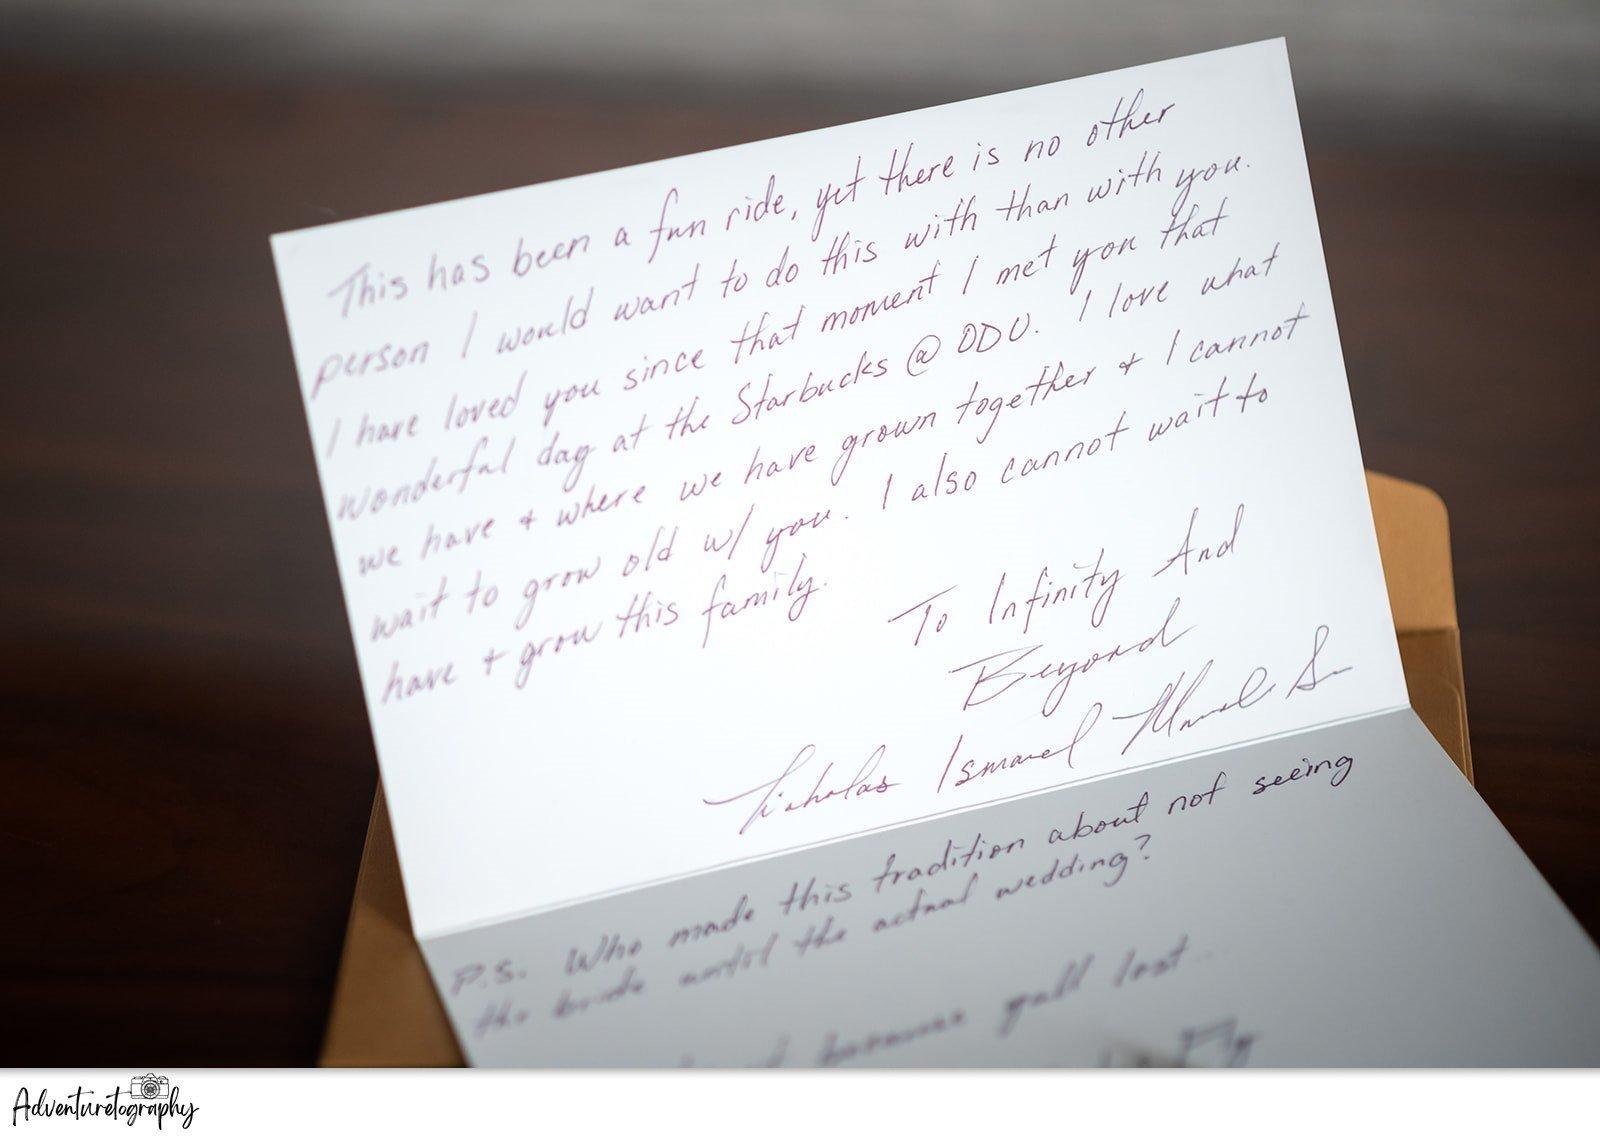 This has been a fun ride, yet there is no other
person I would want to do this with than with you.
I have loved you since that moment I met you that
wonderful day at the Starbucks @ ODU. I love what
we have & where we have grown together & I cannot
wait to grow old w/ you. I also cannot wait to
have & grow this family.
To Infinity And
Beyond
Nicholas Ismael
P.S. Who made this tradition about not seeing
the bride until the actual wedding?
because y'all lost...
Adventuretography